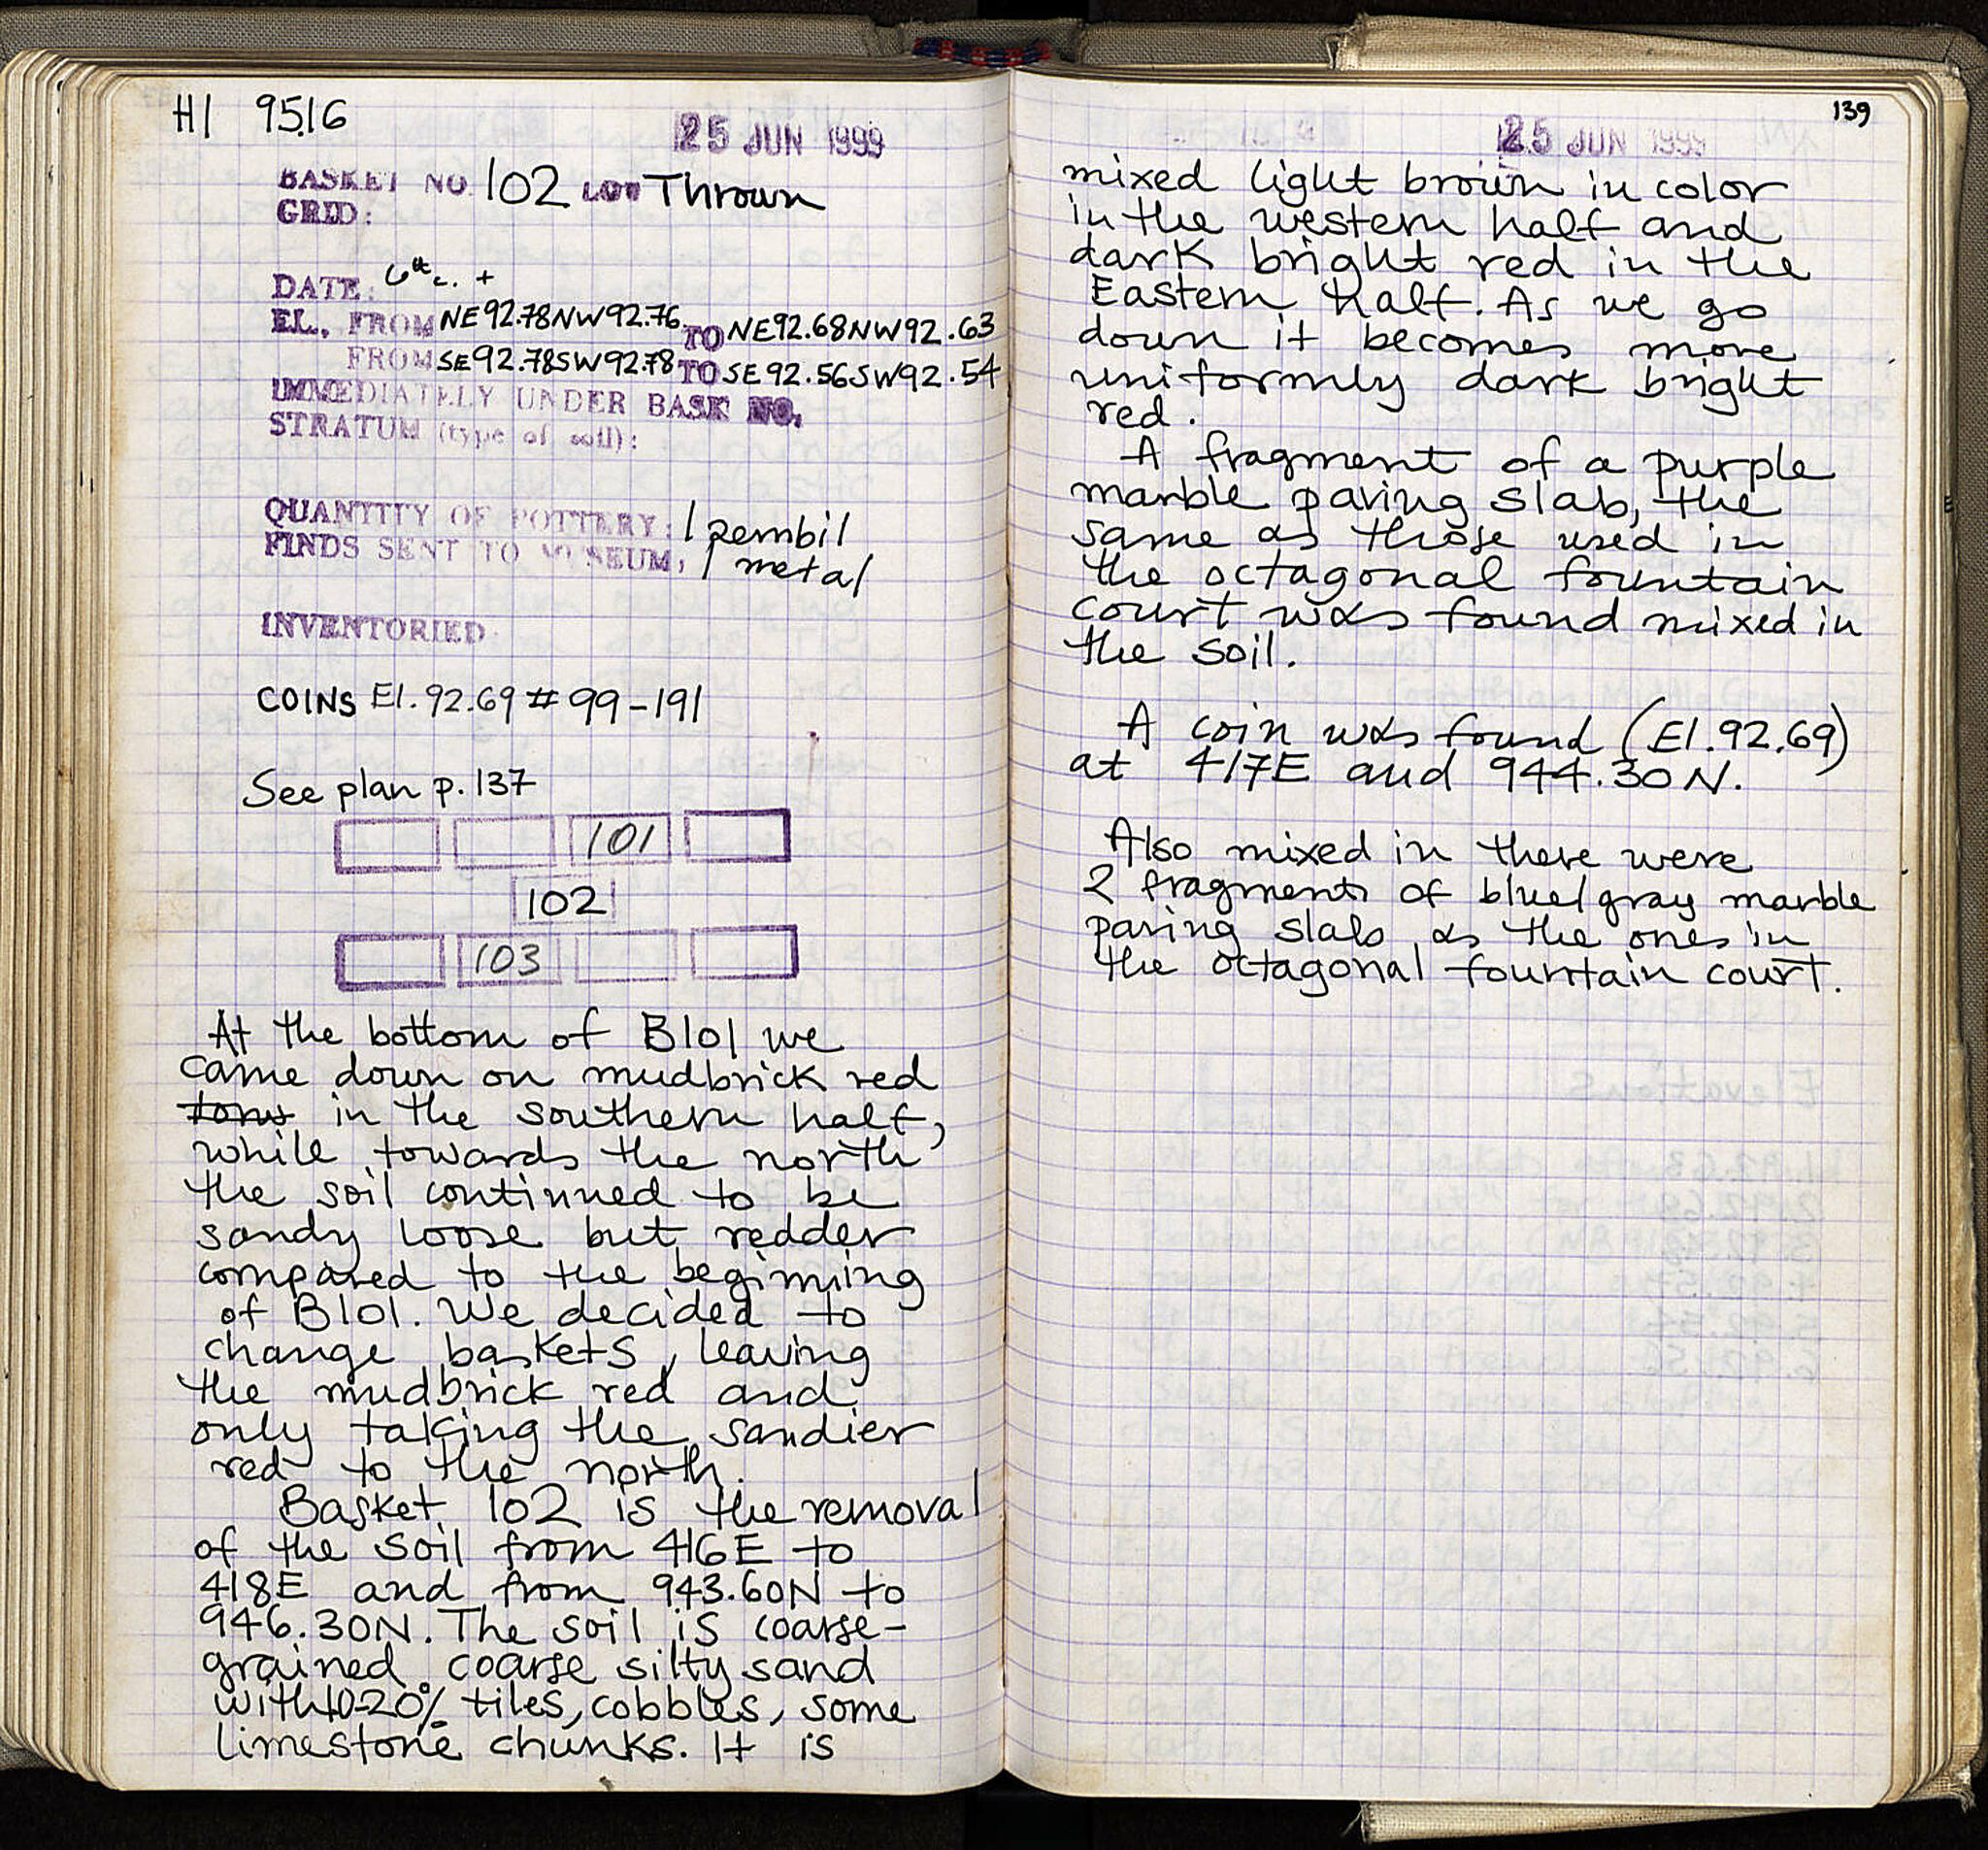 HI 9516
25 JUN 1999
BASKET NO. 102 LOT Thrown
GRID:
DATE: 6th c. +
EL., FROM NE92.78NW92.76 TO NE92.68NW92.63
FROM SE92.78SW92.78 TO SE92.56SW92.54
IMMEDIATELY UNDER BASK NO.
STRATUM (type of soil):
QUANTITY OF POTTERY: 1 zembil
FINDS SENT TO MUSEUM: 1 metal
INVENTORIED
COINS El. 92.69 # 99-191
See plan p. 137
101
102
103
At the bottom of B101 we
came down on mudbrick red
in the southern half,
while towards the north
the soil continued to be
sandy loose but redder
compared to the beginning
of B101. We decided to
change baskets, leaving
the mudbrick red and
only taking the sandier
red to the north.
Basket 102 is the removal
of the soil from 416E to
418E and from 943.60N to
946.30N. The soil is coarse-
grained coarse silty sand
with 10-20% tiles, cobbles, some
limestone chunks. It is
139
25 JUN 1999
mixed light brown in color
in the western half and
dark bright red in the
Eastern half. As we go
down it becomes more
uniformly dark bright
red.
A fragment of a purple
marble paving slab, the
same as those used in
the octagonal fountain
court was found mixed in
the soil.
A coin was found (El. 92.69)
at 417E and 944.30N.
Also mixed in there were
2 fragments of blue/gray marble
paving slab as the ones in
the octagonal fountain court.